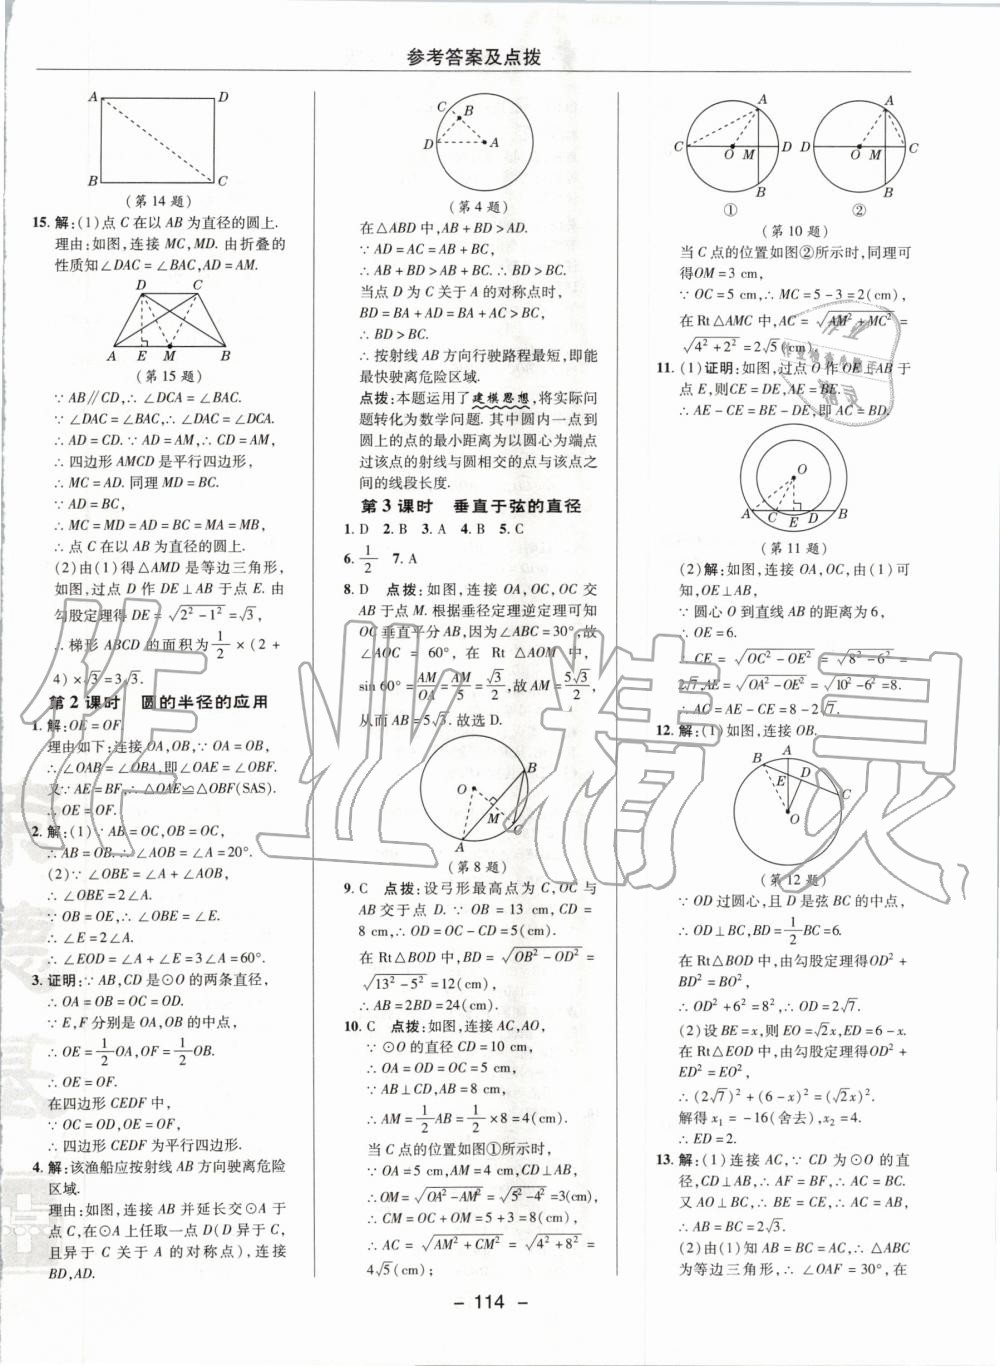 参考答案及点拨
A D
B C
(第14题)
15. 解:(1)点C在以AB为直径的圆上.
理由:如图,连接MC,MD. 由折叠的
性质知∠DAC=∠BAC,AD=AM.
D C
A E M B
(第15题)
∵AB∥CD,∴∠DCA=∠BAC.
∵∠DAC=∠BAC,∴∠DAC=∠DCA.
∴AD=CD. ∵AD=AM,∴CD=AM,
∴四边形AMCD是平行四边形,
∴MC=AD. 同理MD=BC.
∵AD=BC,
∴MC=MD=AD=BC=MA=MB,
∴点C在以AB为直径的圆上.
(2)由(1)得△AMD是等边三角形,
如图,过点D作DE⊥AB于点E. 由
勾股定理得DE=√(2²-1²)=√3,
∴梯形ABCD的面积为1/2×(2+
4)×√3=3√3.
第2课时 圆的半径的应用
1. 解:OE=OF.
理由如下:连接OA,OB,∵OA=OB,
∴∠OAB=∠OBA,即∠OAE=∠OBF.
又∵AE=BF,∴△OAE≌△OBF(SAS).
∴OE=OF.
2. 解:(1)∵AB=OC,OB=OC,
∴AB=OB.∴∠AOB=∠A=20°.
(2)∵∠OBE=∠A+∠AOB,
∴∠OBE=2∠A.
∵OB=OE,∴∠OBE=∠E.
∴∠E=2∠A.
∴∠EOD=∠A+∠E=3∠A=60°.
3. 证明:∵AB,CD是⊙O的两条直径,
∴OA=OB=OC=OD.
∵E,F分别是OA,OB的中点,
∴OE=1/2OA,OF=1/2OB.
∴OE=OF.
在四边形CEDF中,
∵OC=OD,OE=OF,
∴四边形CEDF为平行四边形.
4. 解:该渔船应按射线AB方向驶离危险
区域.
理由:如图,连接AB并延长交⊙A于
点C,在⊙A上任取一点D(D异于C,
且异于C关于A的对称点),连接
BD,AD.
C B
D A
(第4题)
在△ABD中,AB+BD>AD.
∵AD=AC=AB+BC,
∴AB+BD>AB+BC.∴BD>BC.
当点D为C关于A的对称点时,
BD=BA+AD=BA+AB+BC,
∴BD>BC.
∴按射线AB方向行驶路程最短,即能
最快驶离危险区域.
点拨:本题运用了建模思想,将实际问
题转化为数学问题. 其中圆内一点到
圆上的点的最小距离为以圆心为端点
过该点的射线与圆相交的点与该点之
间的线段长度.
第3课时 垂直于弦的直径
1. D 2. B 3. A 4. B 5. C
6. 1/2 7. A
8. D 点拨:如图,连接OA,OC,OC交
AB于点M. 根据垂径定理逆定理可知
OC垂直平分AB,因为∠ABC=30°,故
∠AOC=60°,在Rt△AOM中,
sin 60°=AM/OA=AM/5=√3/2,故AM=5√3/2,
从而AB=5√3. 故选D.
B
O
M
A C
(第8题)
9. C 点拨:设弓形最高点为C,OC与
AB交于点D. ∵OB=13 cm,CD=
8 cm,∴OD=OC-CD=5(cm).
在Rt△BOD中,BD=√(OB²-OD²)=
√(13²-5²)=12(cm),
∴AB=2BD=24(cm).
10. C 点拨:如图,连接AC,AO,
∵⊙O的直径CD=10 cm,
∴OA=OD=OC=5 cm.
∵AB⊥CD,AB=8 cm,
∴AM=1/2AB=1/2×8=4(cm).
当C点的位置如图①所示时,
∵OA=5 cm,AM=4 cm,CD⊥AB,
∴OM=√(OA²-AM²)=√(5²-4²)=3(cm),
∴CM=OC+OM=5+3=8(cm),
∴AC=√(AM²+CM²)=√(4²+8²)=
4√5(cm);
A A
C O M D D O M C
B B
① ②
(第10题)
当C点的位置如图②所示时,同理可
得OM=3 cm,
∵OC=5 cm,∴MC=5-3=2(cm),
在Rt△AMC中,AC=√(AM²+MC²)=
√(4²+2²)=2√5(cm).
11. (1)证明:如图,过点O作OE⊥AB于
点E,则CE=DE,AE=BE.
∴AE-CE=BE-DE,即AC=BD.
O
A C E D B
(第11题)
(2)解:如图,连接OA,OC,由(1)可
知,OE⊥AB,
∵圆心O到直线AB的距离为6,
∴OE=6.
∴CE=√(OC²-OE²)=√(8²-6²)=
2√7,AE=√(OA²-OE²)=√(10²-6²)=8.
∴AC=AE-CE=8-2√7.
12. 解:(1)如图,连接OB.
A
B E D
C
O
(第12题)
∵OD过圆心,且D是弦BC的中点,
∴OD⊥BC,BD=1/2BC=6.
在Rt△BOD中,由勾股定理得OD²+
BD²=BO²,
∴OD²+6²=8²,∴OD=2√7.
(2)设BE=x,则EO=√2x,ED=6-x.
在Rt△EOD中,由勾股定理得OD²+
ED²=EO²,
∴(2√7)²+(6-x)²=(√2x)².
解得x₁=-16(舍去),x₂=4.
∴ED=2.
13. 解:(1)连接AC,∵CD为⊙O的直
径,CD⊥AB,∴AF=BF,∴AC=BC.
又AO⊥BC,∴BE=CE,∴AC=AB,
∴AB=BC=2√3.
(2)由(1)知AB=BC=AC,∴△ABC
为等边三角形,∴∠OAF=30°,在
- 114 -
作业精灵